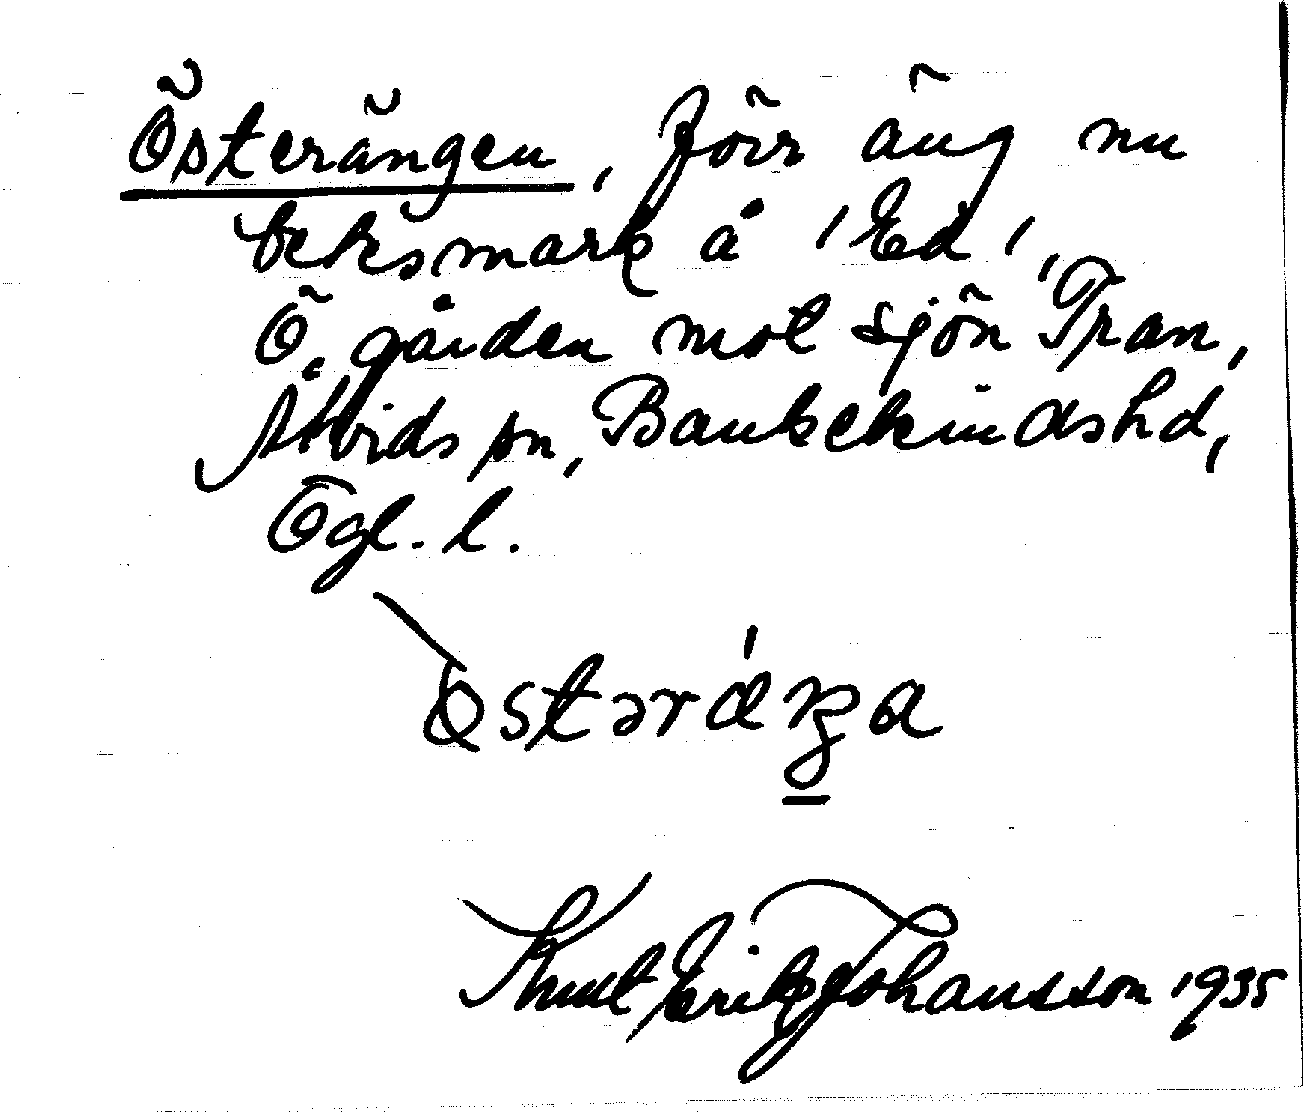 Österängen, förr äng nu
betesmark å 'Ed',
Ö. gården mot sjön Tran,
Åtvids sn, Bankekinds hd,
Ögl. l.
östəräŋa
Knut Erik Johansson 1935